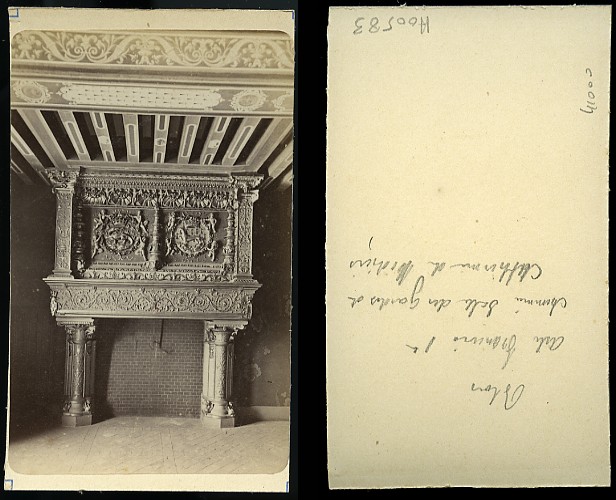 Blois
aile François 1er
cheminé Salle des gardes de
Catherine de Médicis
H00583